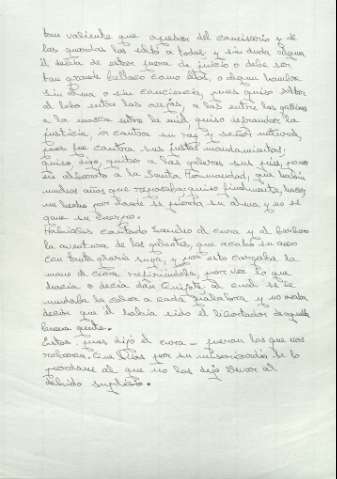 tan valiente que a pesar del comisario y de
los guardas los soltó a todos; y sin duda alguna
él debía de estar fuera de juicio o debe ser
tan grande bellaco como ellos, o algun hombre
sin alma o sin conciencia, pues quiso soltar
el lobo entre las ovejas, a la entre las gallinas
a la mosca entre la miel, quiso defraudar la
justicia, ir contra su rey y señor natural,
pues fue contra sus justos mandamientos;
quiso, digo, quitar a las galeras sus pies, poner
en alboroto a la Santa Hermandad, que había
muchos años que reposaba; quiso finalmente, hacer
un hecho por donde se pierda su alma y no se
gane su cuerpo.
Habíales contado Sancho al cura y al barbero
la aventura de los galeotes, que acabó su amo
con tanta gloria suya, y por esto cargaba la
mano el cura refiriéndola, por ver lo que
hacía o decía don Quijote, al cual se le
mudaba la color a cada palabra y no osaba
decir que él había sido el libertador de aquella
buena gente.
Estos, pues dijo el cura - fueron los que nos
robaron. Que Dios por su misericordia se lo
perdone al que no los dejó llevar al
debido suplicio.